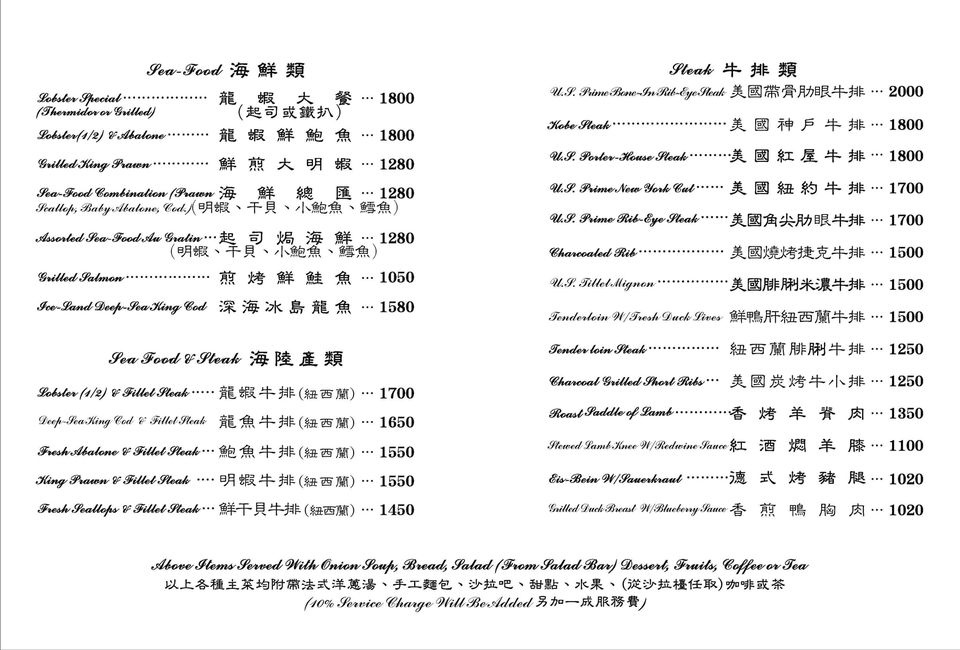 Sea-Food 海鮮類
Lobster Special ⋯⋯⋯⋯⋯⋯ 龍蝦大餐 ⋯ 1800
(Thermidor or Grilled) (起司或鐵扒)
Lobster(1/2) & Abalone ⋯⋯⋯ 龍蝦鮮鮑魚 ⋯ 1800
Grilled King Prawn ⋯⋯⋯⋯ 鮮煎大明蝦 ⋯ 1280
Sea-Food Combination (Prawn 海鮮總匯 ⋯ 1280
Scallop, Baby Abalone, Cod.) (明蝦、干貝、小鮑魚、鱈魚)
Assorted Sea-Food Au Gratin ⋯ 起司焗海鮮 ⋯ 1280
(明蝦、干貝、小鮑魚、鱈魚)
Grilled Salmon ⋯⋯⋯⋯⋯⋯ 煎烤鮮鮭魚 ⋯ 1050
Ice-Land Deep-Sea King Cod 深海冰島龍魚 ⋯ 1580
Sea Food & Steak 海陸產類
Lobster (1/2) & Fillet Steak ⋯⋯ 龍蝦牛排(紐西蘭) ⋯ 1700
Deep-Sea King Cod & Fillet Steak 龍魚牛排(紐西蘭) ⋯ 1650
Fresh Abalone & Fillet Steak ⋯ 鮑魚牛排(紐西蘭) ⋯ 1550
King Prawn & Fillet Steak ⋯⋯ 明蝦牛排(紐西蘭) ⋯ 1550
Fresh Scallops & Fillet Steak ⋯ 鮮干貝牛排(紐西蘭) ⋯ 1450
Steak 牛排類
U.S. Prime Bone-In Rib-Eye Steak 美國帶骨肋眼牛排 ⋯ 2000
Kobe Steak ⋯⋯⋯⋯⋯⋯⋯⋯ 美國神戶牛排 ⋯ 1800
U.S. Porter-House Steak ⋯⋯⋯ 美國紅屋牛排 ⋯ 1800
U.S. Prime New York Cut ⋯⋯ 美國紐約牛排 ⋯ 1700
U.S. Prime Rib-Eye Steak ⋯⋯ 美國角尖肋眼牛排 ⋯ 1700
Charcoaled Rib ⋯⋯⋯⋯⋯⋯ 美國燒烤捷克牛排 ⋯ 1500
U.S. Fillet Mignon ⋯⋯⋯⋯⋯ 美國腓脷米濃牛排 ⋯ 1500
Tenderloin W/Fresh Duck Lives 鮮鴨肝紐西蘭牛排 ⋯ 1500
Tender loin Steak ⋯⋯⋯⋯⋯ 紐西蘭腓脷牛排 ⋯ 1250
Charcoal Grilled Short Ribs ⋯ 美國炭烤牛小排 ⋯ 1250
Roast Saddle of Lamb ⋯⋯⋯⋯ 香烤羊脊肉 ⋯ 1350
Stewed Lamb Knee W/Redwine Sauce 紅酒燜羊膝 ⋯ 1100
Eis-Bein W/Sauerkraut ⋯⋯⋯ 德式烤豬腿 ⋯ 1020
Grilled Duck Breast W/Blueberry Sauce 香煎鴨胸肉 ⋯ 1020
Above Items Served With Onion Soup, Bread, Salad (From Salad Bar) Dessert, Fruits, Coffee or Tea
以上各種主菜均附帶法式洋蔥湯、手工麵包、沙拉吧、甜點、水果、(從沙拉檯任取)咖啡或茶
(10% Service Charge Will Be Added 另加一成服務費)